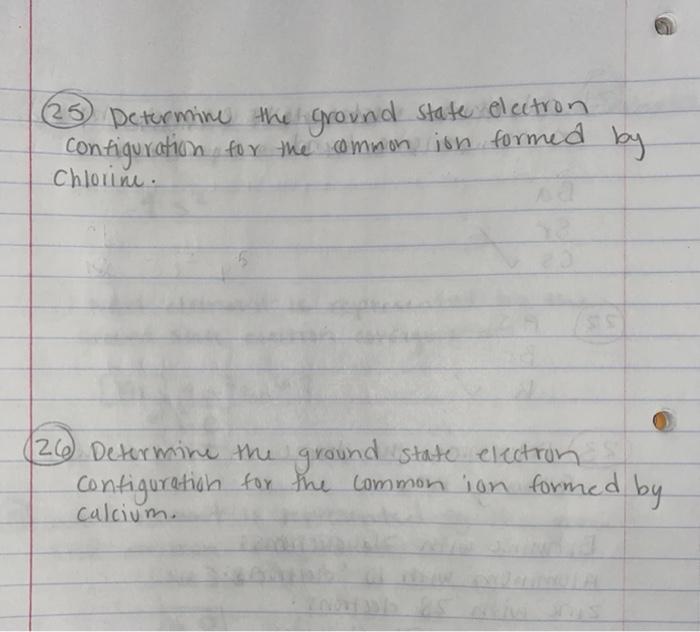 25 Determine the ground state electron
configuration for the common ion formed by
Chlorine.
5
26 Determine the ground state electron
configuration for the common ion formed by
calcium.